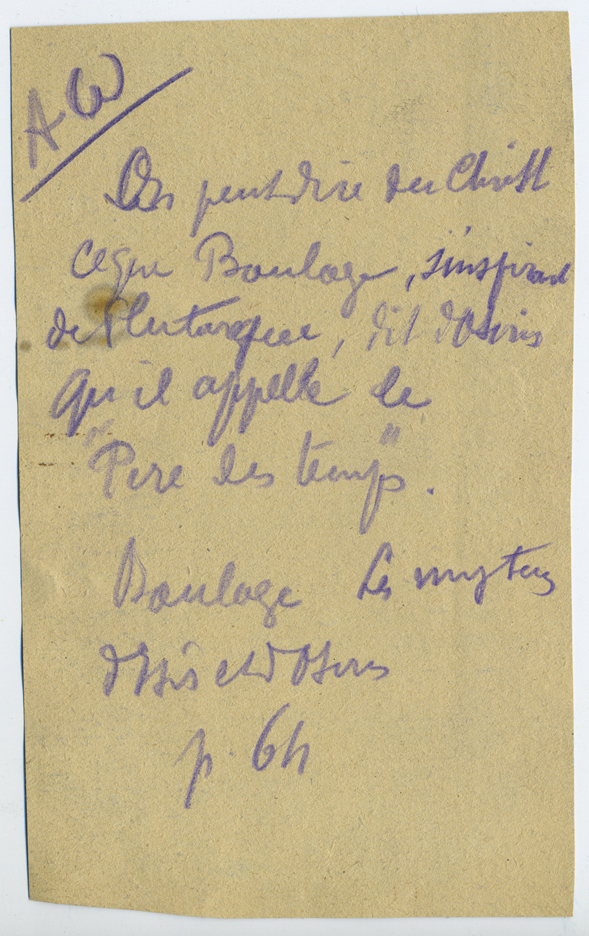 A ω
On peut dire du Christ
ce que Boulage, s'inspirant
de Plutarque, dit d'Osiris
qu'il appelle le
"Père des temps".
Boulage Les mystères
d'Isis et d'Osiris
p. 64